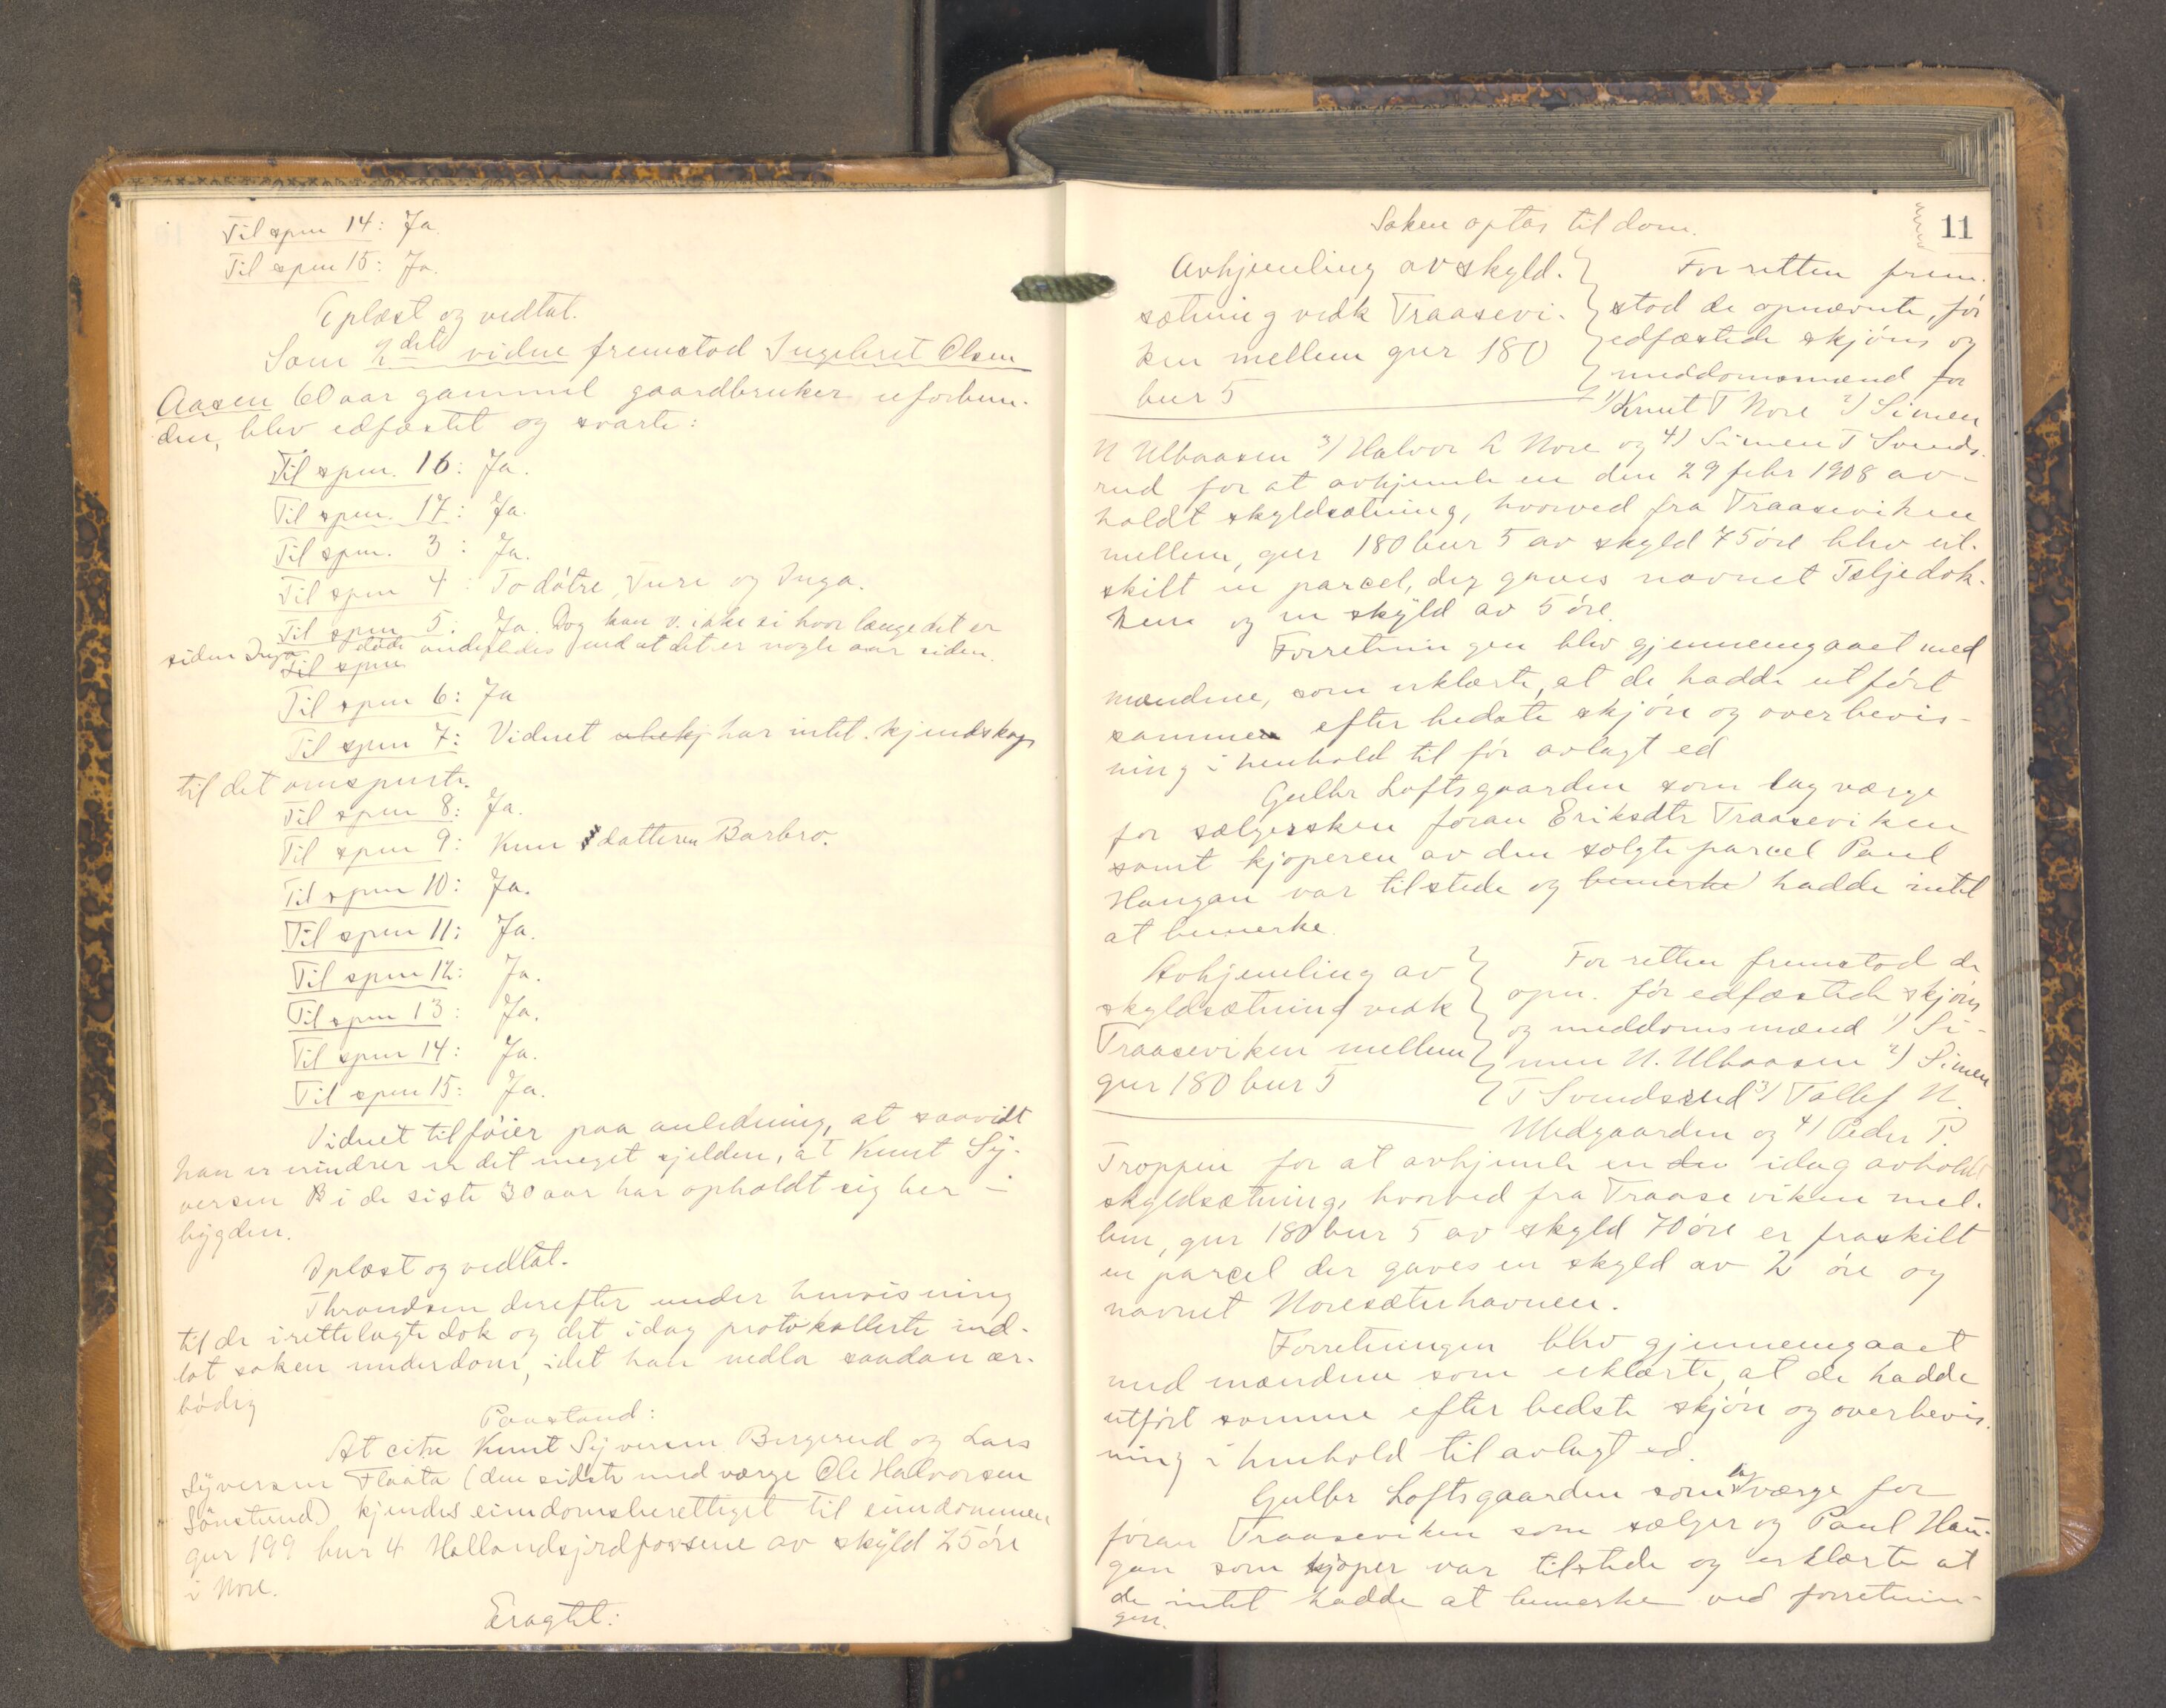 Til spm 14: Ja.
Til spm 15: Ja.
Oplæst og vedtat.
Som 2det vidne fremstod Ingebret Olsen
Aasen 60 aar gammel gaardbruker uforbun-
den, blev edfæstet og svarte:
Til spm. 16: Ja.
Til spm. 17: Ja.
Til spm. 3: Ja.
Til spm 4: To døtre, Ture og Inga.
Til spm 5: Ja. Dog kan v. ikke si hvor længe det er
siden Inga døde anderledes end at det er nogle aar siden.
Til spm
Til spm 6: Ja
Til spm 7: Vidnet har intet kjendskap
til det omspurte.
Til spm 8: Ja.
Til spm 9: Kun datteren Barbro.
Til spm 10: Ja.
Til spm 11: Ja.
Til spm 12: Ja.
Til spm 13: Ja.
Til spm 14: Ja.
Til spm 15: Ja.
Vidnet tilføier paa anledning, at saavidt
han erindrer er det meget sjelden, at Knut Sy-
versen B i de siste 30 aar har opholdt sig her i
bygden.
Oplæst og vedtat.
Throndsen derefter under henvisning
til de irettelagte dok og det idag protokollerte ind-
lot saken under dom, idet han nedla saadan ær-
bødig
Paastand:
At citr Knut Syversen Bergerud og Lars
Syversen Flaata (den sidste med værge Ole Halvorsen
Sønstund) kjendes eiendomsberettiget til eiendommen
gnr 199 bnr 4 Hallandsjordfossene av skyld 25 øre
i Nore.
Eragtet:
11
Saken optas til dom.
Avhjemling av skyld-
sætning vedk Traasevi-
ken mellem gnr 180
bnr 5
For retten frem-
stod de opnævnte, før
edfæstede skjøns og
meddomsmænd for
1) Knut T Nore 2) Simen
N Ulbaasen 3) Halvor L Nore og 4) Simen T Svends-
rud for at avhjemle en den 29 febr 1908 av-
holdt skyldsætning, hvorved fra Traaseviken
mellem, gnr 180 bnr 5 av skyld 75 øre blev ut-
skilt en parcel, der gaves navnet Teljedok-
ken og en skyld av 5 øre.
Forretningen blev gjennemgaaet med
mændene, som erklærte, at de hadde utført
samme efter bedste skjøn og overbevis-
ning i henhold til før avlagt ed
Gulbr Loftsgaarden som lagværge
for sælgersken Jøran Eriksdtr Traaseviken
samt kjøperen av den solgte parcel Paul
Haugan var tilstede og bemerke hadde intet
at bemerke.
Avhjemling av
skyldsætning vedk
Traaseviken mellem
gnr 180 bnr 5
For retten fremstod de
opn. før edfæstede skjøns
og meddomsmænd 1) Si-
men N. Ulbaasen 2) Simen
T Svendsrud 3) Tollef N.
Midgaarden og 4) Peder P.
Troppen for at avhjemle en den idag avholdt
skyldsætning, hvorved fra Traaseviken mel-
lem, gnr 180 bnr 5 av skyld 70 øre er fraskilt
en parcel der gaves en skyld av 2 øre og
navnet Noresæterhavnen.
Forretningen blev gjennemgaaet
med mændene som erklærte, at de hadde
utført samme efter bedste skjøn og overbevis-
ning i henhold til avlagt ed.
Gulbr Loftsgaarden som lagværge for
Jøran Traaseviken som sælger og Paul Hau-
gan som kjøper var tilstede og erklærte at
de intet hadde at bemerke ved forretnin-
gen.